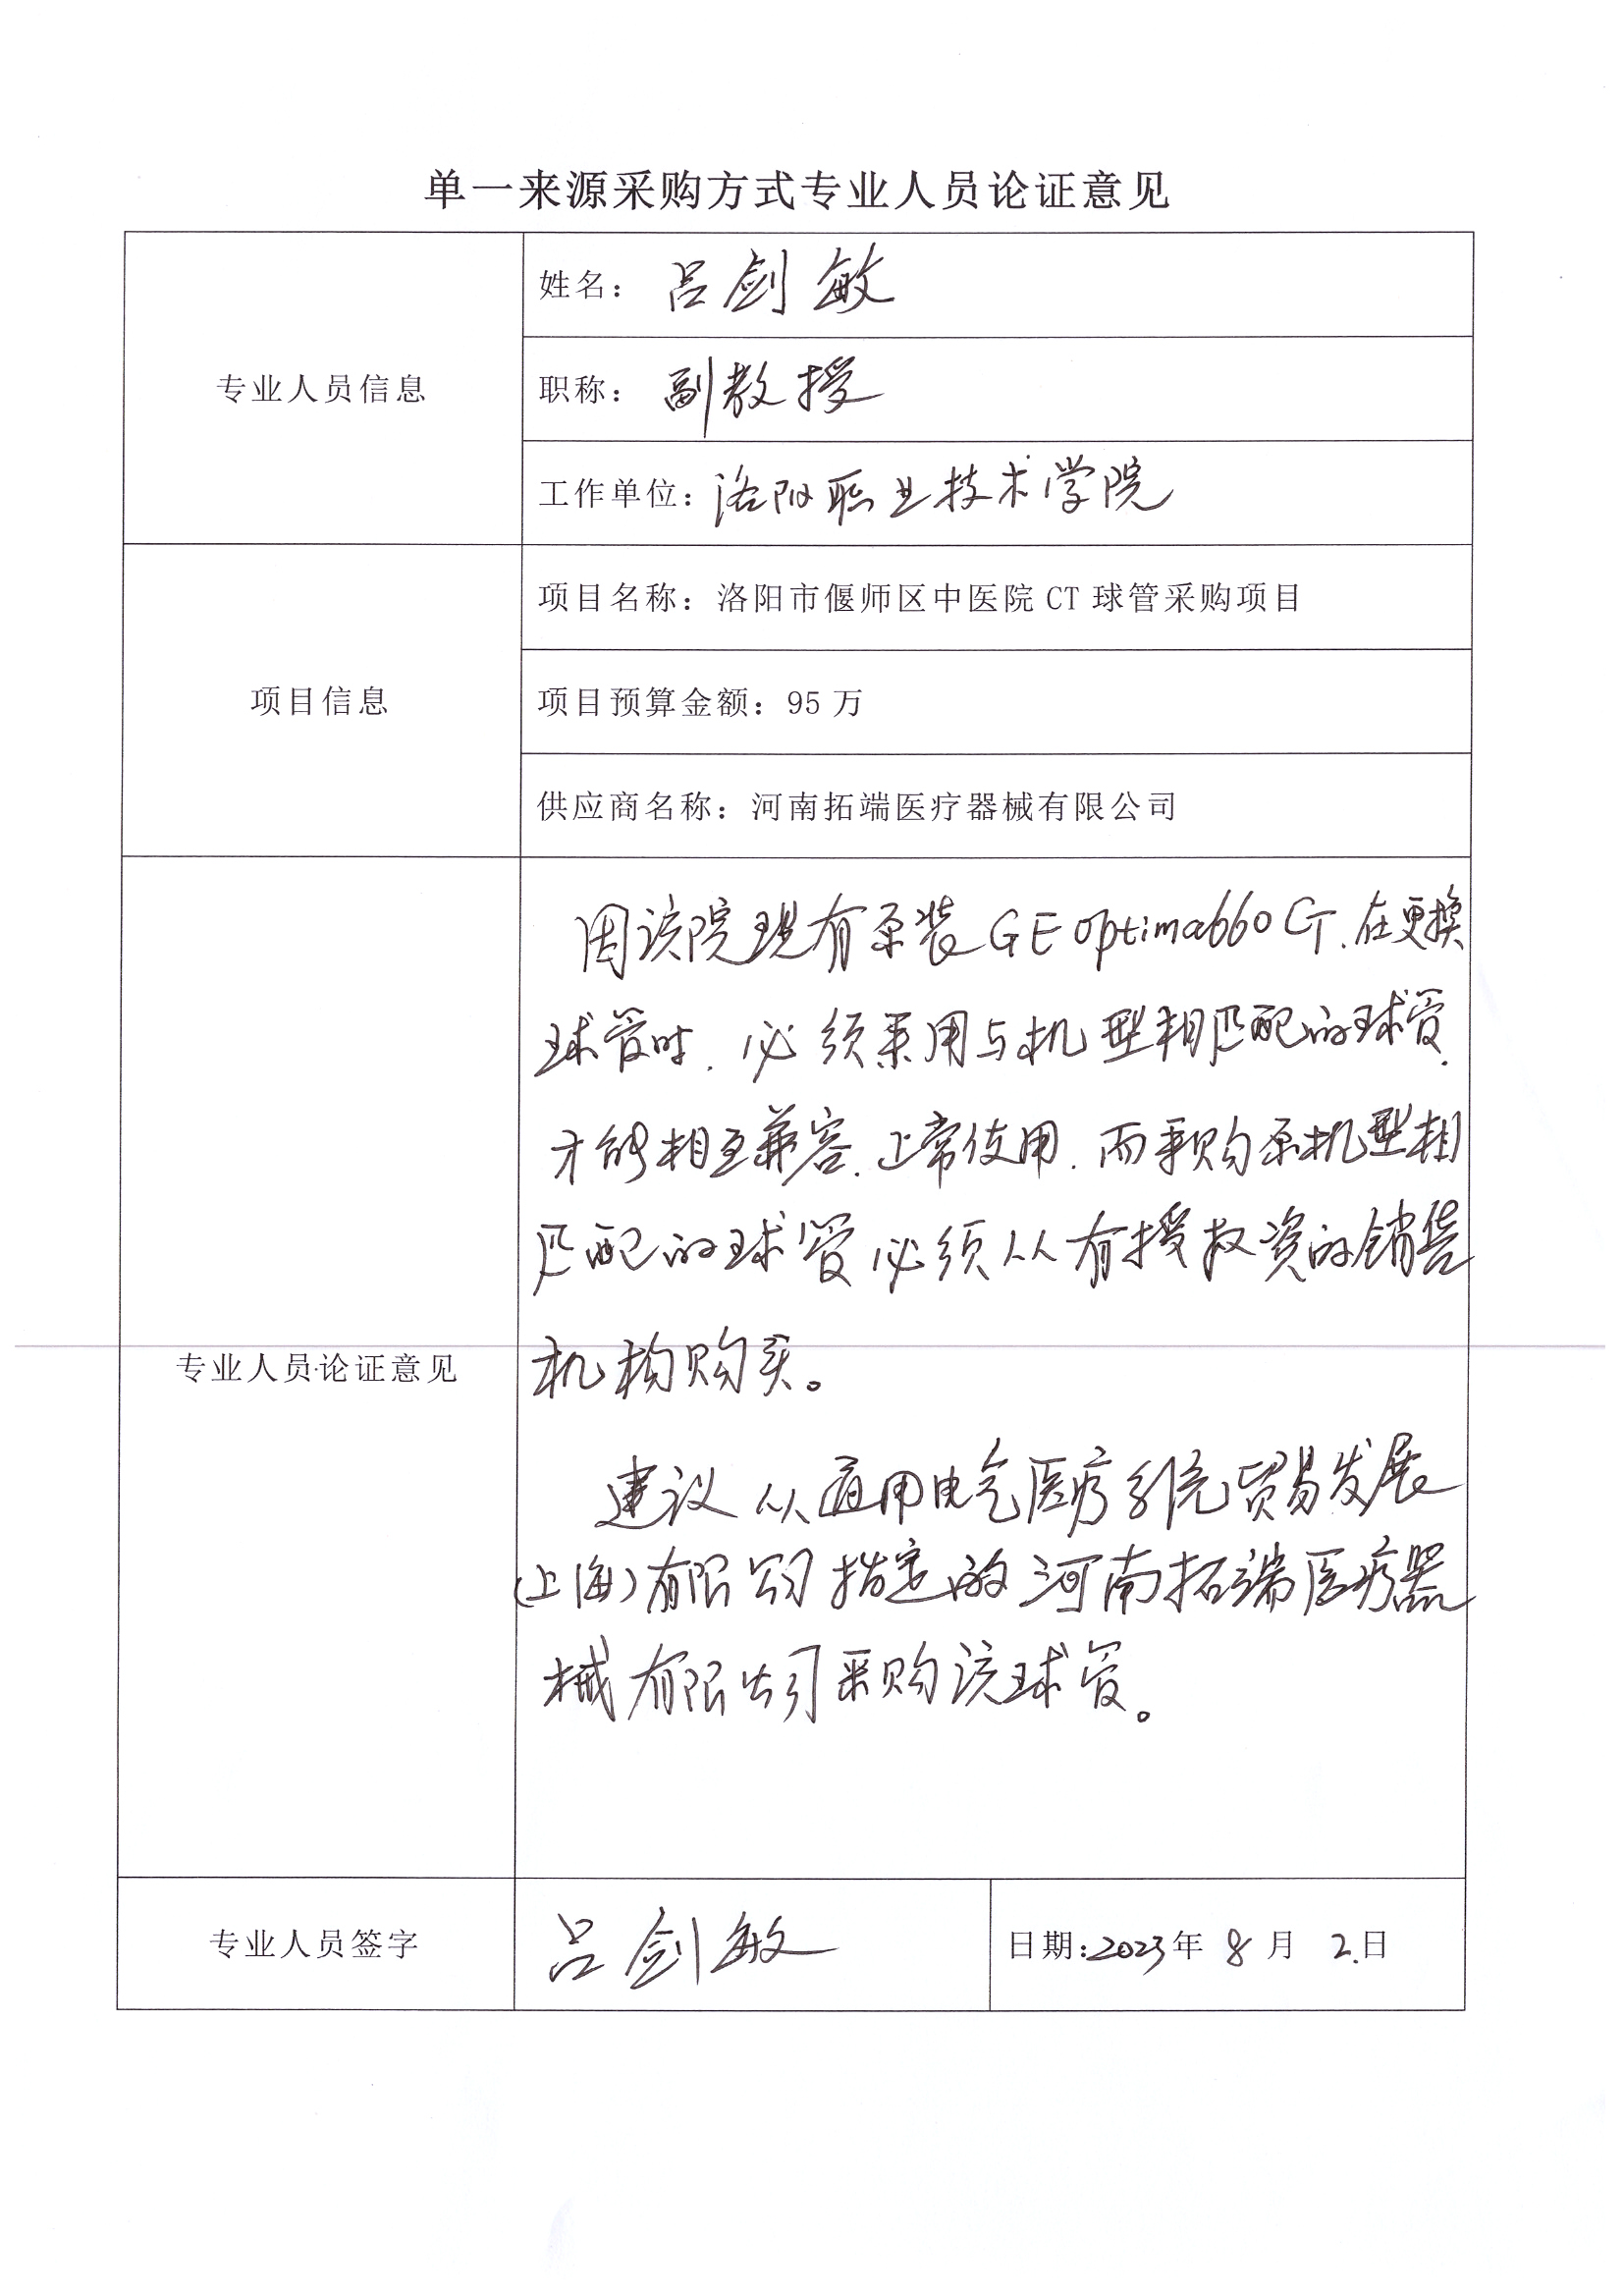 单一来源采购方式专业人员论证意见
专业人员信息
姓名：吕剑敏
职称：副教授
工作单位：洛阳职业技术学院
项目信息
项目名称：洛阳市偃师区中医院 CT 球管采购项目
项目预算金额：95 万
供应商名称：河南拓端医疗器械有限公司
专业人员论证意见
因该院现有原装GE optima660 CT.在更换
球管时.必须采用与机型相匹配的球管.
才能相互兼容.正常使用.而采购原机型相
匹配的球管必须从有授权资的销售
机构购买。
建议从通用电气医疗系统贸易发展
(上海)有限公司指定的河南拓端医疗器
械有限公司采购该球管。
专业人员签字
吕剑敏
日期:2023年 8 月 2.日